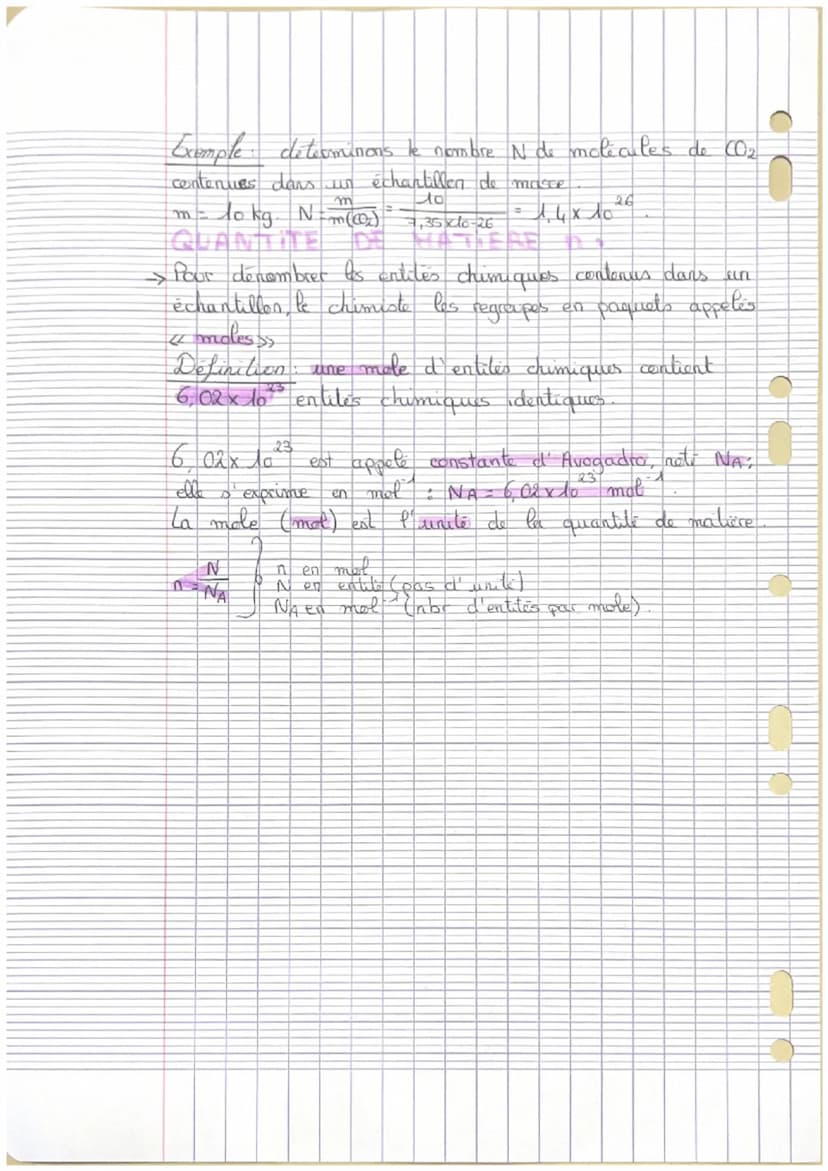 Exemple : déterminons le nombre N de molécules de CO₂
contenues dans un échantillon de masse.
m = 10 kg. N = m/m(CO₂) = 10/7,35x10-26 = 1,4 x 10²⁶.
QUANTITÉ DE MATIÈRE n :
→ Pour dénombrer les entités chimiques contenus dans un
échantillon, le chimiste les regroupes en paquets appelés
« moles »
Définition : une mole d'entités chimiques contient
6,02 x 10²³ entités chimiques identiques.
6,02 x 10²³ est appelé constante d'Avogadro, noté NA ;
elle s'exprime en mol⁻¹ : NA = 6,02 x 10²³ mol⁻¹.
La mole (mol) est l'unité de la quantité de matière.
n = N/NA
n en mol
N en entité (pas d'unité)
NA en mol⁻¹ (nbr d'entités par mole).